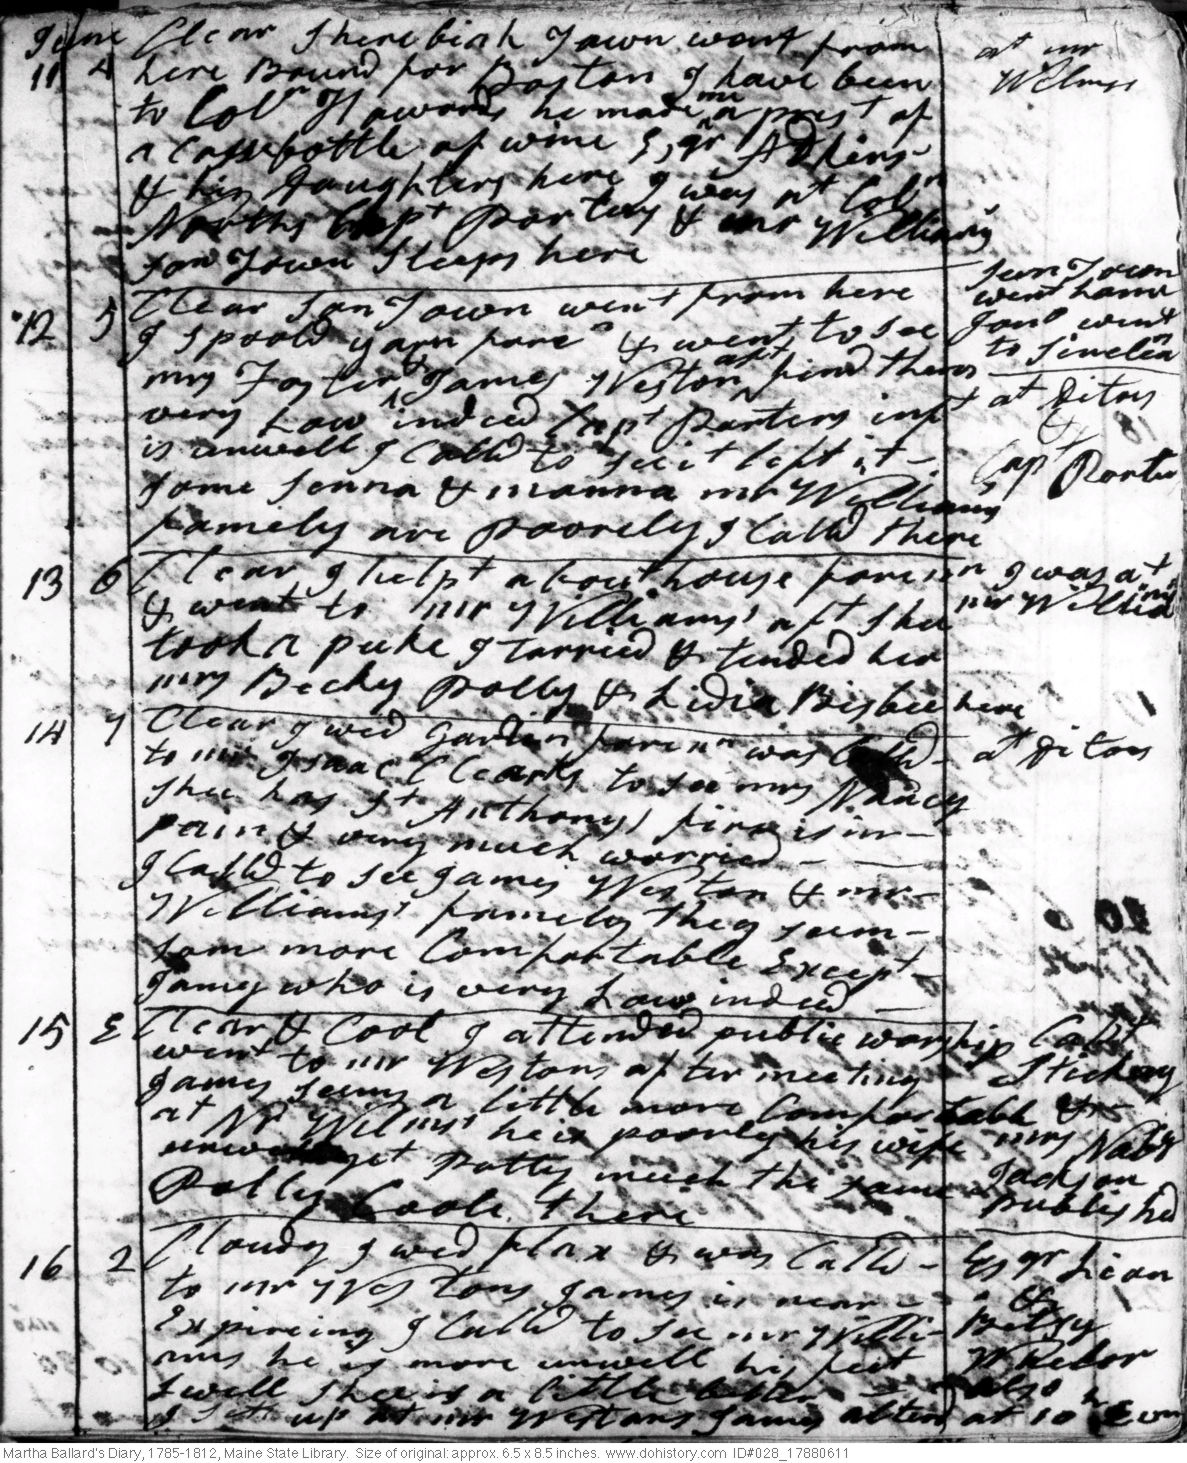 June Clear I here birth Jawn went from
11 4 here Bound for Boston I have been
to Coln Howards he made me a prest of
a Case bottle of wine Esqr Adkins
& his Daughters here I was at Coln
Norths Capt Porters & mr Williams
son Town Sleeps here
at mr
Wilms
12 5 Clear son Town went from here
I spoold yarn foren & went to see
mrs Foster & James Weston aft find them
very Low indeed Capt Porters inft
is unwell I Calld to see it left it
some senna & manna mr Williams
famely are poorely I Calld there
son Town
went home
Jonn went
to Linclln
at Ditos
&
Capt Porter
13 6 Clear I helpt about house foren
& went to mr Williams' aft shee
took a puke I Tarried & tended her
mrs Becky Polly & Lidia Bisbee here
I was at
mr Williams
14 7 Clear I wed gardin foren was Calld
to mr Isaac Clearks to see mrs Nancy
shee has St Anthonys fire is in
pain & very much worried
I Calld to see James Weston & mr
Williams' famely they seem
som more Comfortable Except
Jamey who is very Low indeed
at Ditos
15 E Clear & Cool I attended public worship
went to mr Westons after meeting
James seems a little more Comfortable &
at Mr Wilms' he is poorly his wife
unwell yet Patty much the same
Polly Coole there
Capt
Stickney
&
mrs Nabby
Jackson
published
16 2 Cloudy I wed flax & was Calld
to mr Westons James is near
Expireing I Calld to see mr Willi
ams he is more unwell his feet
swell shee is a little better
I set up at mr Westons James alterd at 10 h Evn
Esqr Lion
&
Betsy
Wheler
also
Martha Ballard's Diary, 1785-1812, Maine State Library. Size of original: approx. 6.5 x 8.5 inches. www.dohistory.com ID#028_17880611